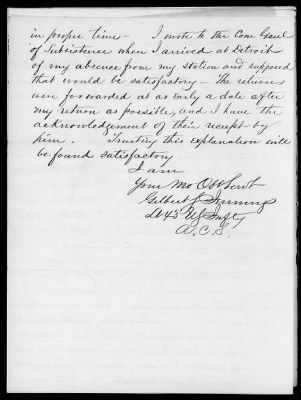 in proper time - I wrote to the Com Genl
of Subsistence when I arrived at Detroit
of my absence from my station and supposed
that would be satisfactory - The returns
were forwarded at as early a date after
my return as possible, and I have the
acknowledgement of their receipt by
him. Trusting this explanation will
be found satisfactory
I am
Your Mo Obt Servt
Gilbert S Jennings
Lt 43 U S Infty
A. C. S.